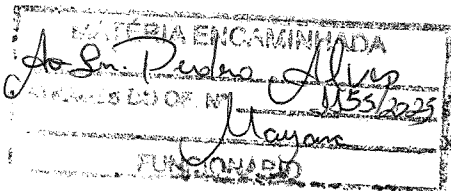 MATÉRIA ENCAMINHADA
Ao Sr. Pedro Alves
ATRAVÉS DO OF. Nº 1155/2025
Mayara
FUNCIONÁRIO